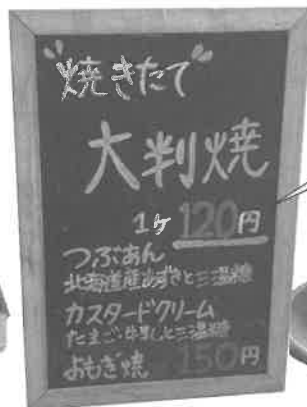 "焼きたて"
大判焼
1ヶ 120円
つぶあん
北海道産あずきと三温糖
カスタードクリーム
たまご・牛乳と三温糖
よもぎ焼 150円